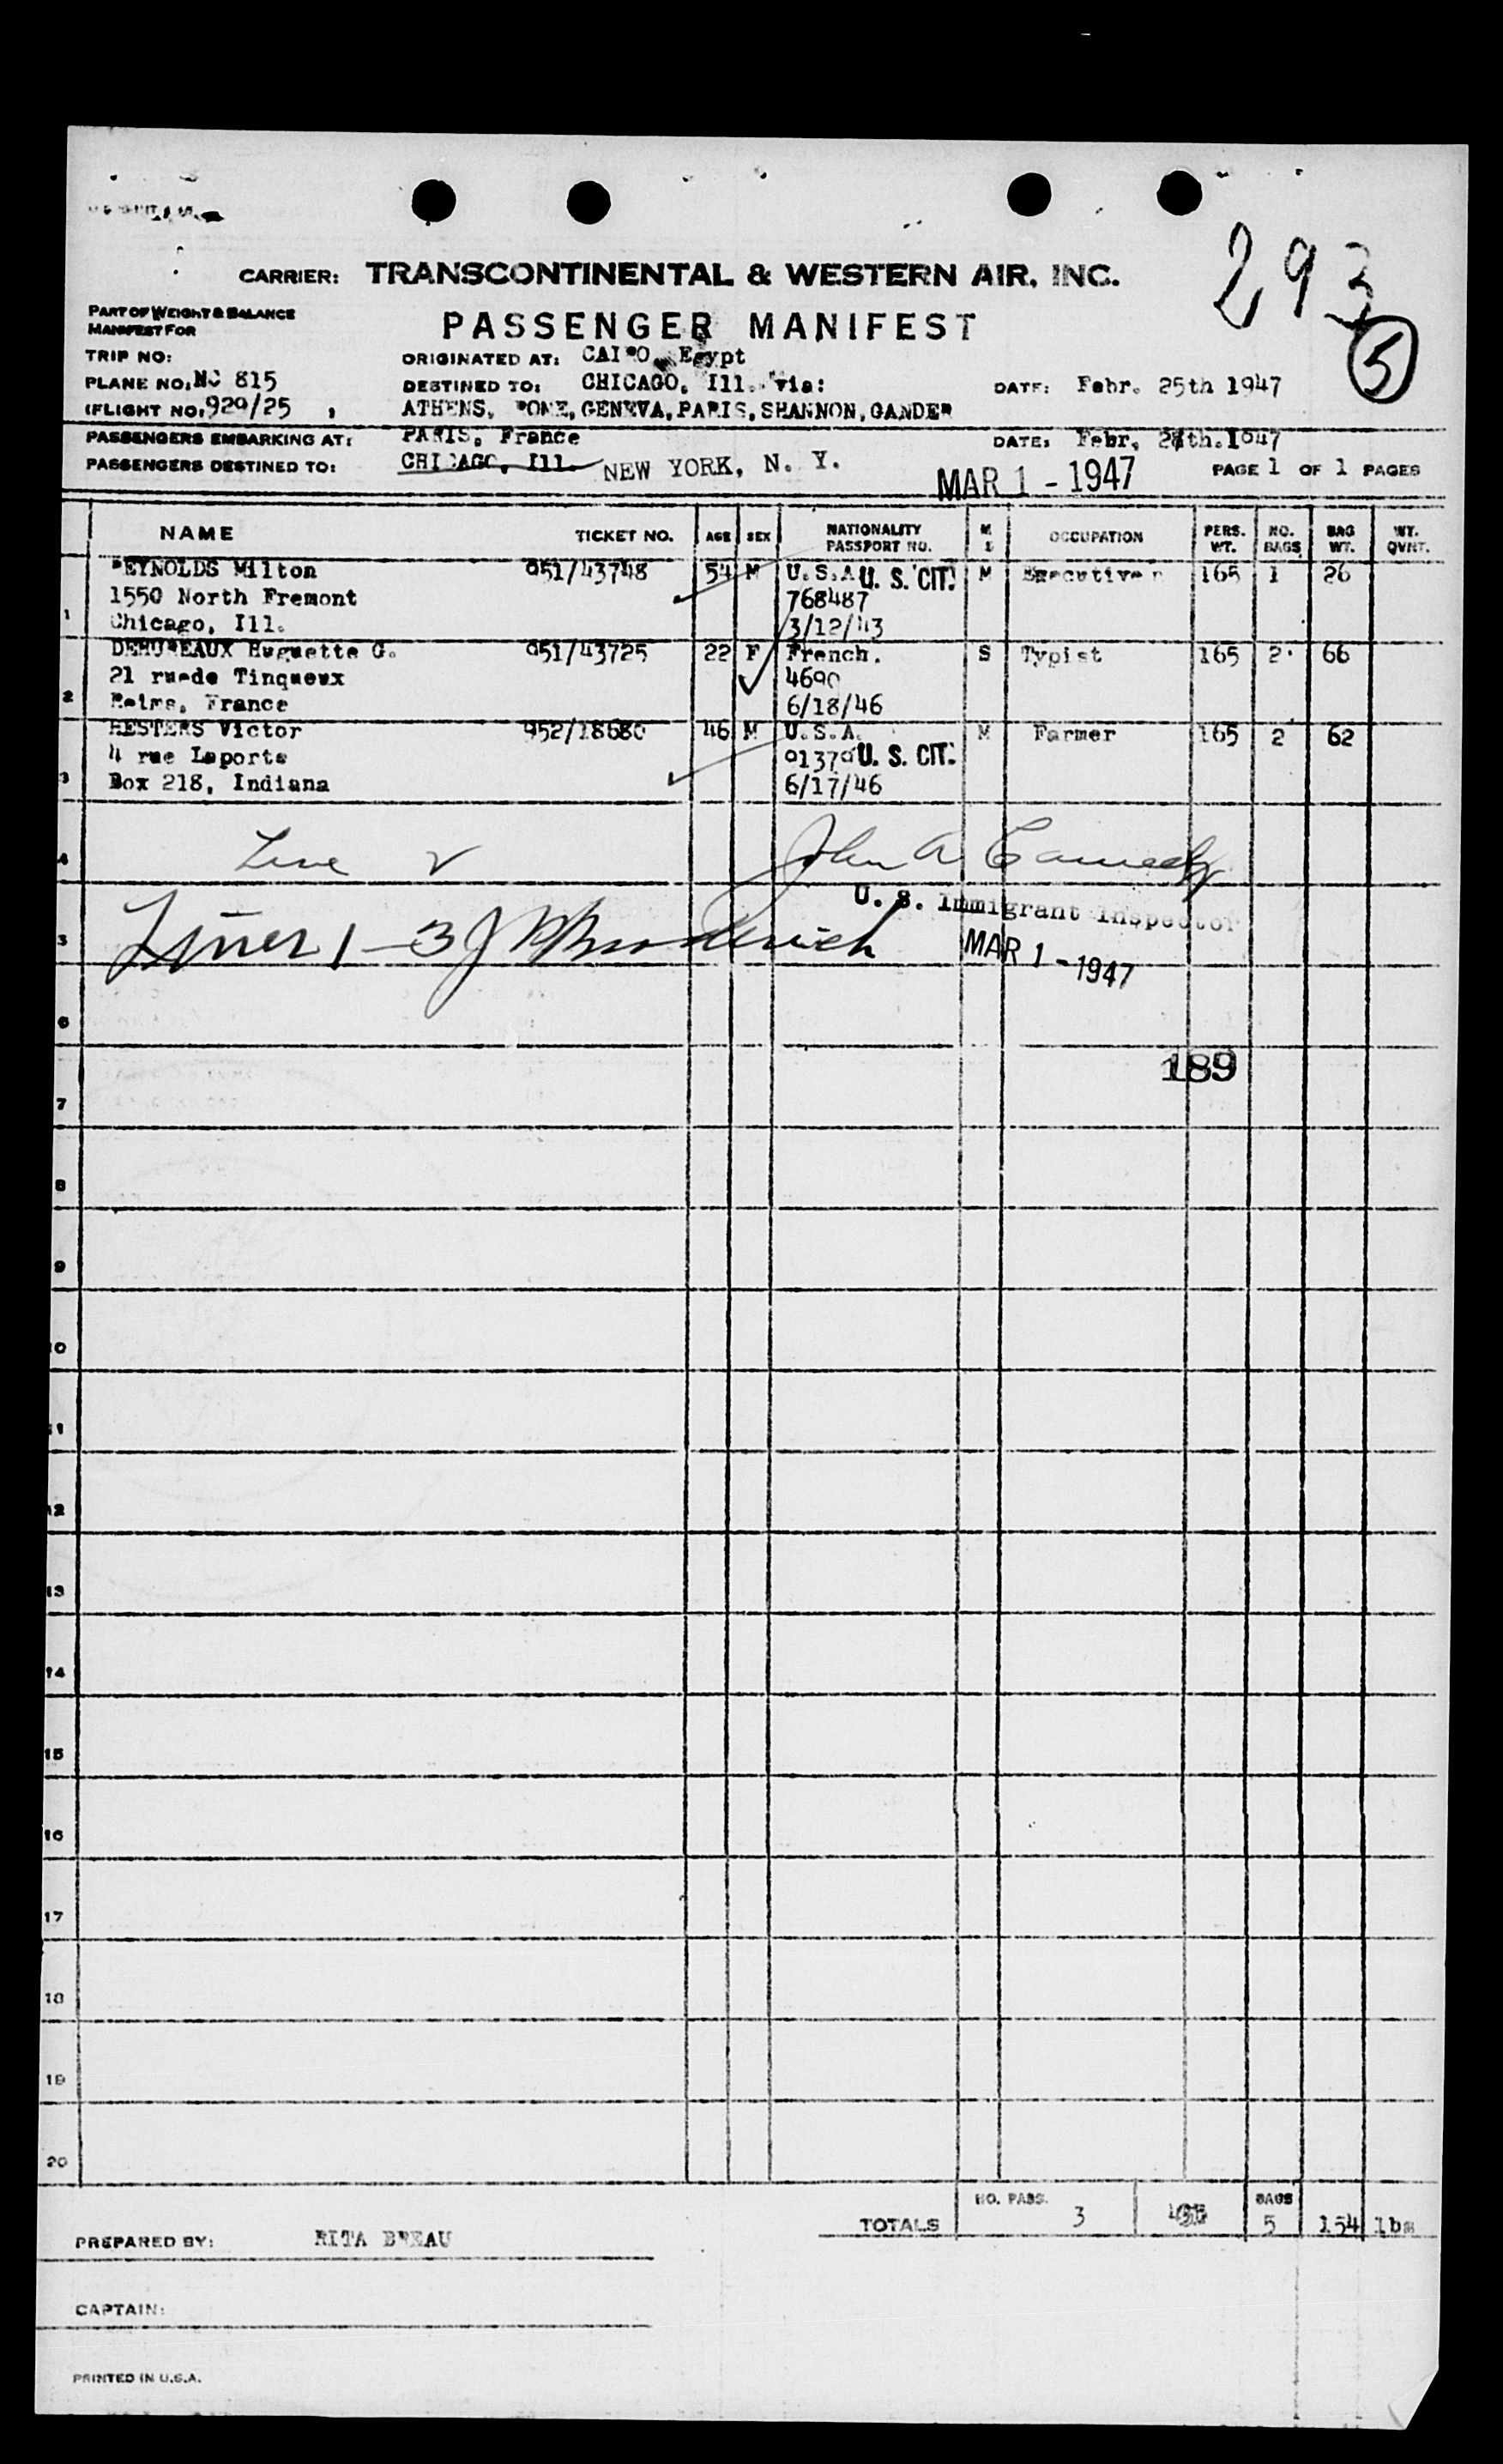 293
CARRIER: TRANSCONTINENTAL & WESTERN AIR, INC.
PART OF WEIGHT & BALANCE
MANIFEST FOR
PASSENGER MANIFEST
5
TRIP NO: ORIGINATED AT: CAIRO, Egypt
PLANE NO: NC 815 DESTINED TO: CHICAGO, Ill. via: DATE: Febr. 25th 1947
(FLIGHT NO. 929/25 , ATHENS, ROME, GENEVA, PARIS, SHANNON, GANDER
PASSENGERS EMBARKING AT: PARIS, France DATE: Febr. 28th.1947
PASSENGERS DESTINED TO: CHICAGO, Ill. NEW YORK, N. Y. MAR 1 - 1947 PAGE 1 OF 1 PAGES
NAME TICKET NO. AGE SEX NATIONALITY PASSPORT NO. M S OCCUPATION PERS. WT. NO. BAGS BAG WT. WT. QVNT.
REYNOLDS Milton 951/43748 54 M U.S.A U. S. CIT. M Executive 165 1 26
1550 North Fremont 768487
1 Chicago, Ill. 3/12/43
Huguette G. 951/43725 22 F French. S Typist 165 2 66
21 rue de Tinqueux 4690
2 Reims, France 6/18/46
HESTERS Victor 952/18680 46 M U.S.A. M Farmer 165 2 62
4 rue Laporte 91379 U. S. CIT.
3 Box 218, Indiana 6/17/46
4 Line John A
U. S. Immigrant Inspector
5 Lines 1-3 J Broderick MAR 1 - 1947
6
189
7
8
9
10
11
12
13
14
15
16
17
18
19
20
TOTALS NO. PASS. 3 BAGS 5 154 lbs
PREPARED BY: RITA BREAU
CAPTAIN:
PRINTED IN U.S.A.